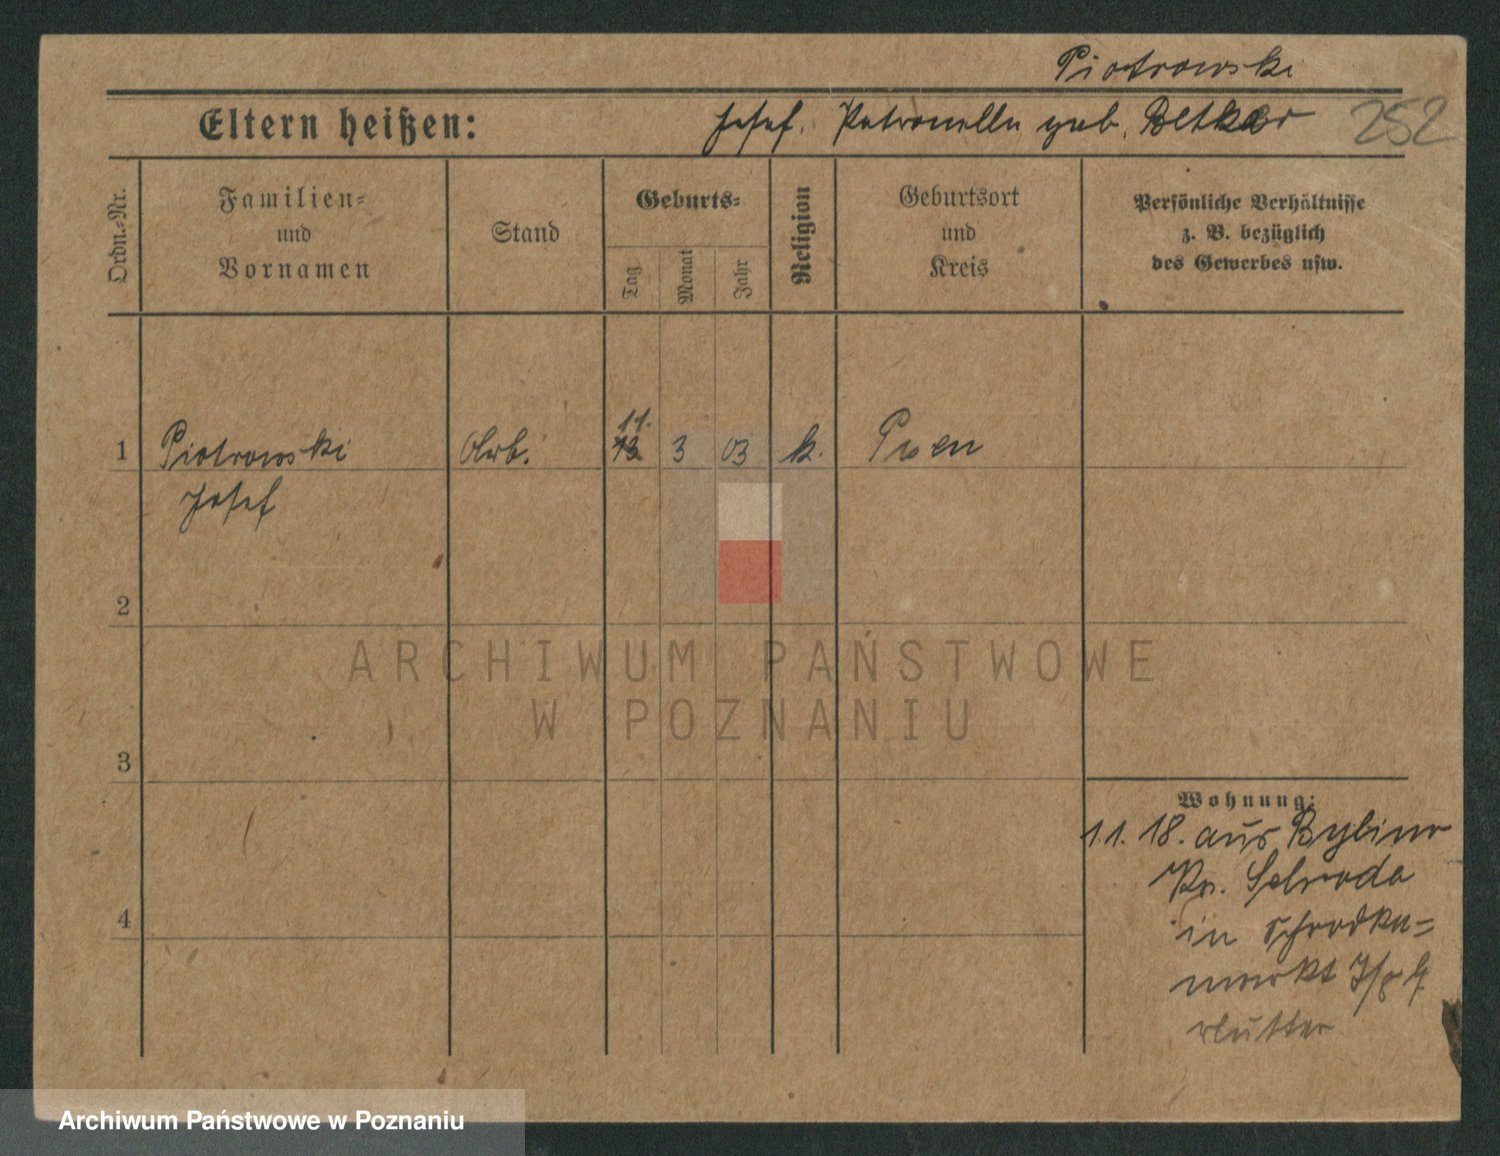 Piotrowski
Eltern heißen: Josef. Patronella geb. Betker 252
Ordn.-Nr.
Familien- und Vornamen
Stand
Geburts-
Tag
Monat
Jahr
Religion
Geburtsort und Kreis
Persönliche Verhältnisse
z. B. bezüglich
des Gewerbes usw.
11.
1 Piotrowski Arb. 13 3 03 k. Posen
Josef
2
3
4
Wohnung:
1.1.18. aus Bylino
Kr. Schroda
in Schrodka-
markt 7/8
Mutter
ARCHIWUM PAŃSTWOWE
W POZNANIU
Archiwum Państwowe w Poznaniu